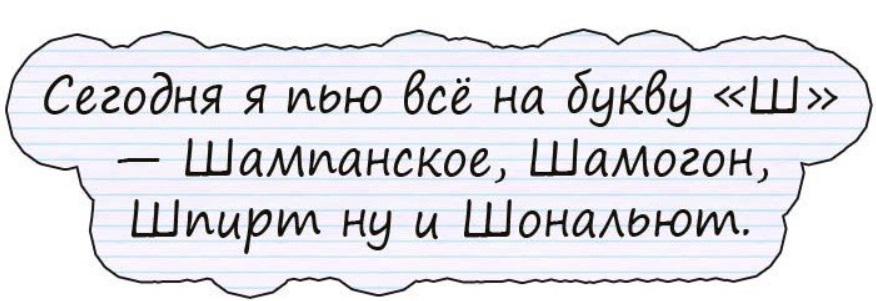 Сегодня я пью всё на букву «Ш»
— Шампанское, Шамогон,
Шпирт ну и Шональют.